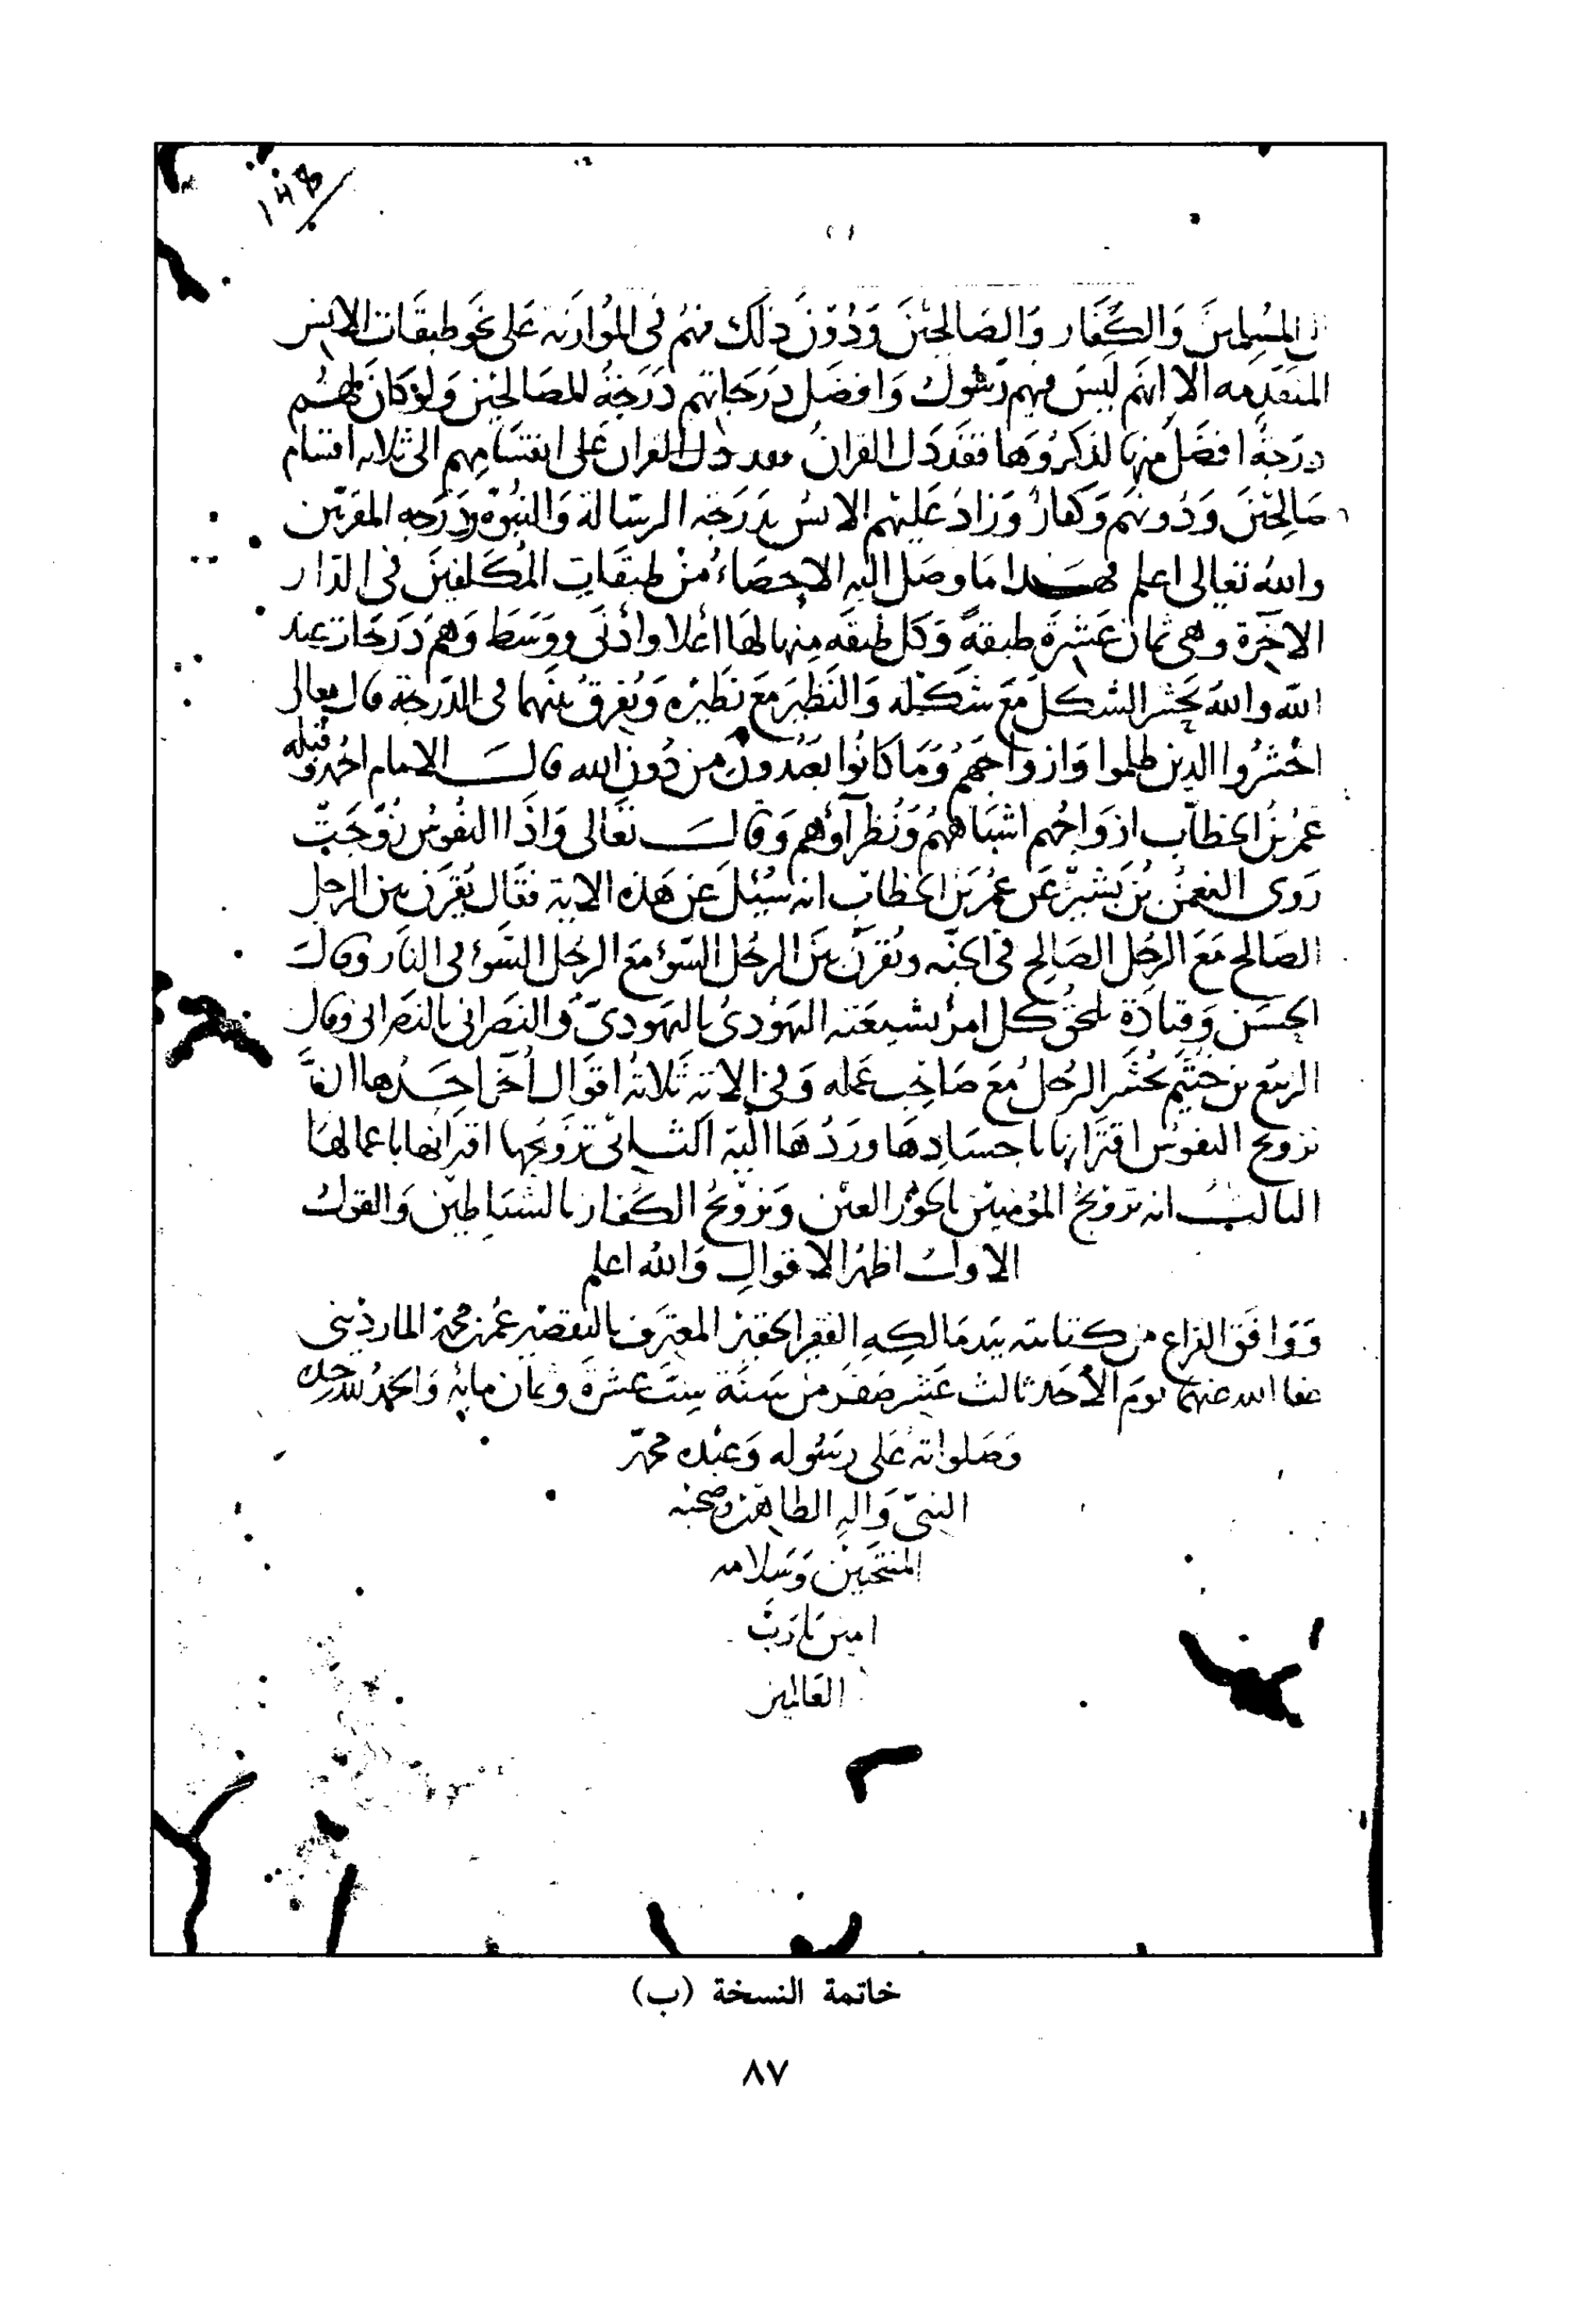 ١٤٨
المسلمين والكفار والصالحين ودون ذلك منهم في الموازنه على نحو طبقات الانس
المتقدمه الا انهم ليس فيهم رسول وافضل درجاتهم درجة الصالحين ولو كان لهم
درجة افضل منها لذكروها فقد دل القران فقد دل القران على انقسامهم الى ثلاثه اقسام
صالحين ودونهم وكفار وزاد عليهم الانس بدرجة الرسالة والنبوة ودرجه المقربين
والله تعالى اعلم فهذا ما وصل اليه الاحصاء من طبقات المكلفين في الدار
الاخرة وهي ثمان عشرة طبقة وكل طبقه منها لها اعلا وادنى ووسط وهم درجات عند
الله والله يحشر الشكل مع شكله والنظير مع نظيره ويفرق بينهما في الدرجة قال تعالى
احشروا الذين ظلموا وازواجهم وما كانوا يعبدون من دون الله قال الامام احمد وقبله
عمر بن الخطاب ازواجهم اشباههم ونظرآؤهم وقال تعالى واذا النفوس زوجت
روى النعمن بن بشير عن عمر بن الخطاب انه سئل عن هذه الاية فقال يقرن بين الرجل
الصالح مع الرجل الصالح في الجنه ويقرن بين الرجل السوء مع الرجل السوء في النار وقال
الحسن وقتادة يلحق كل امرئ بشيعته اليهودي باليهودي والنصراني بالنصراني وقال
الربيع بن خثيم يحشر الرجل مع صاحب عمله وفي الاية ثلاثة اقوال أخر احدها ان
تزويج النفوس اقترانها باجسادها وردها اليه الثاني تزويجها اقترانها باعمالها
الثالث انه تزويج المؤمنين بالحور العين وتزويج الكفار بالشياطين والقول
الاول اظهر الاقوال والله اعلم
ووافق الفراغ من كتابته بيد مالكه الفقير الحقير المعترف بالتقصير عمر بن محمد المارديني
عفا الله عنهما يوم الأحد ثالث عشر صفر من سنة ست عشرة وثمان مائة والحمد لله وحده
وصلواته على رسوله وعبده محمد
النبي واله الطاهرين وصحبه
المنتخبين وسلامه
امين يا رب
العالمين
خاتمة النسخة (ب)
٨٧